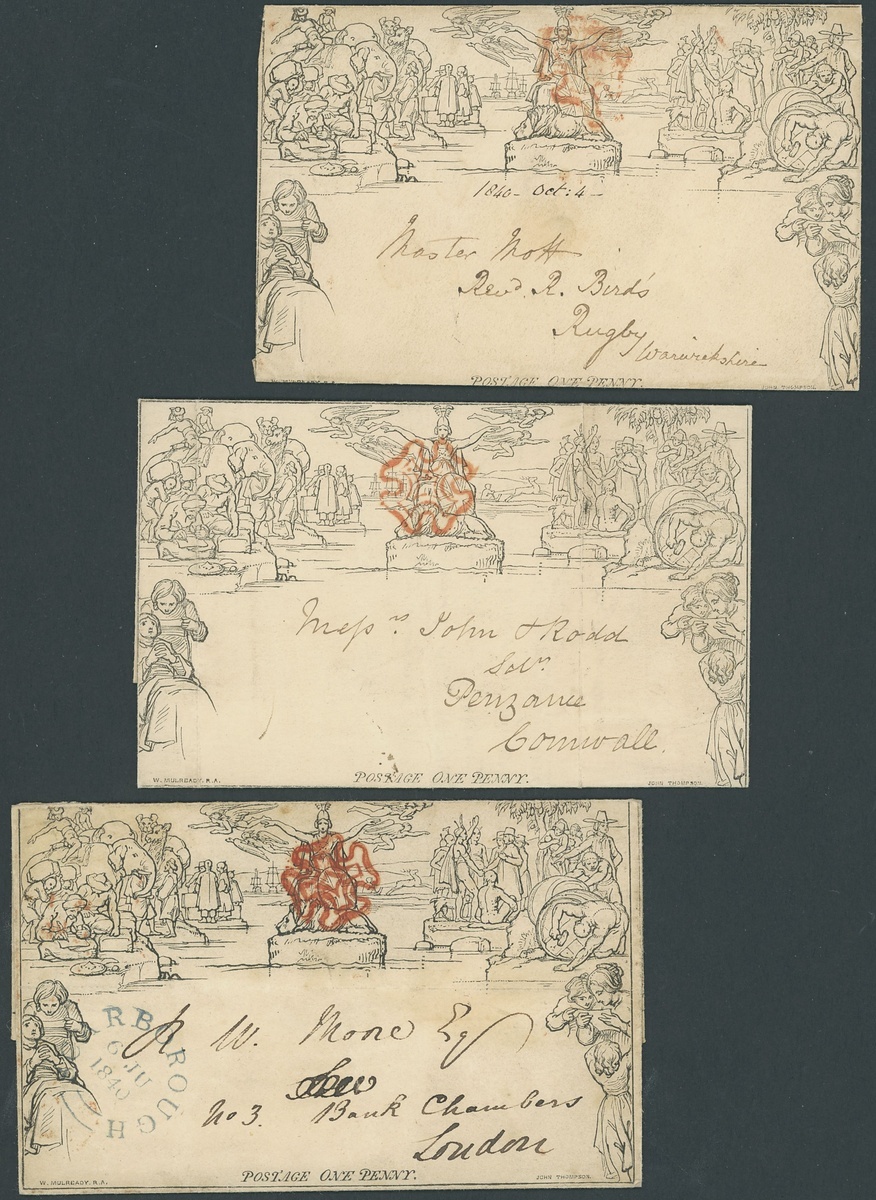 1840 - Oct: 4 -
Master Mott
Revd. R. Bird's
Rugby
Warwickshire
W. MULREADY. R.A.
POSTAGE ONE PENNY.
JOHN THOMPSON.
Messrs John & Rodd
Solrs
Penzance
Cornwall.
W. MULREADY. R.A.
POSTAGE ONE PENNY.
JOHN THOMPSON.
R W. Moore Esq
No 3. Bank Chambers
London
RBOROUGH
6 JU
1840
W. MULREADY. R.A.
POSTAGE ONE PENNY.
JOHN THOMPSON.